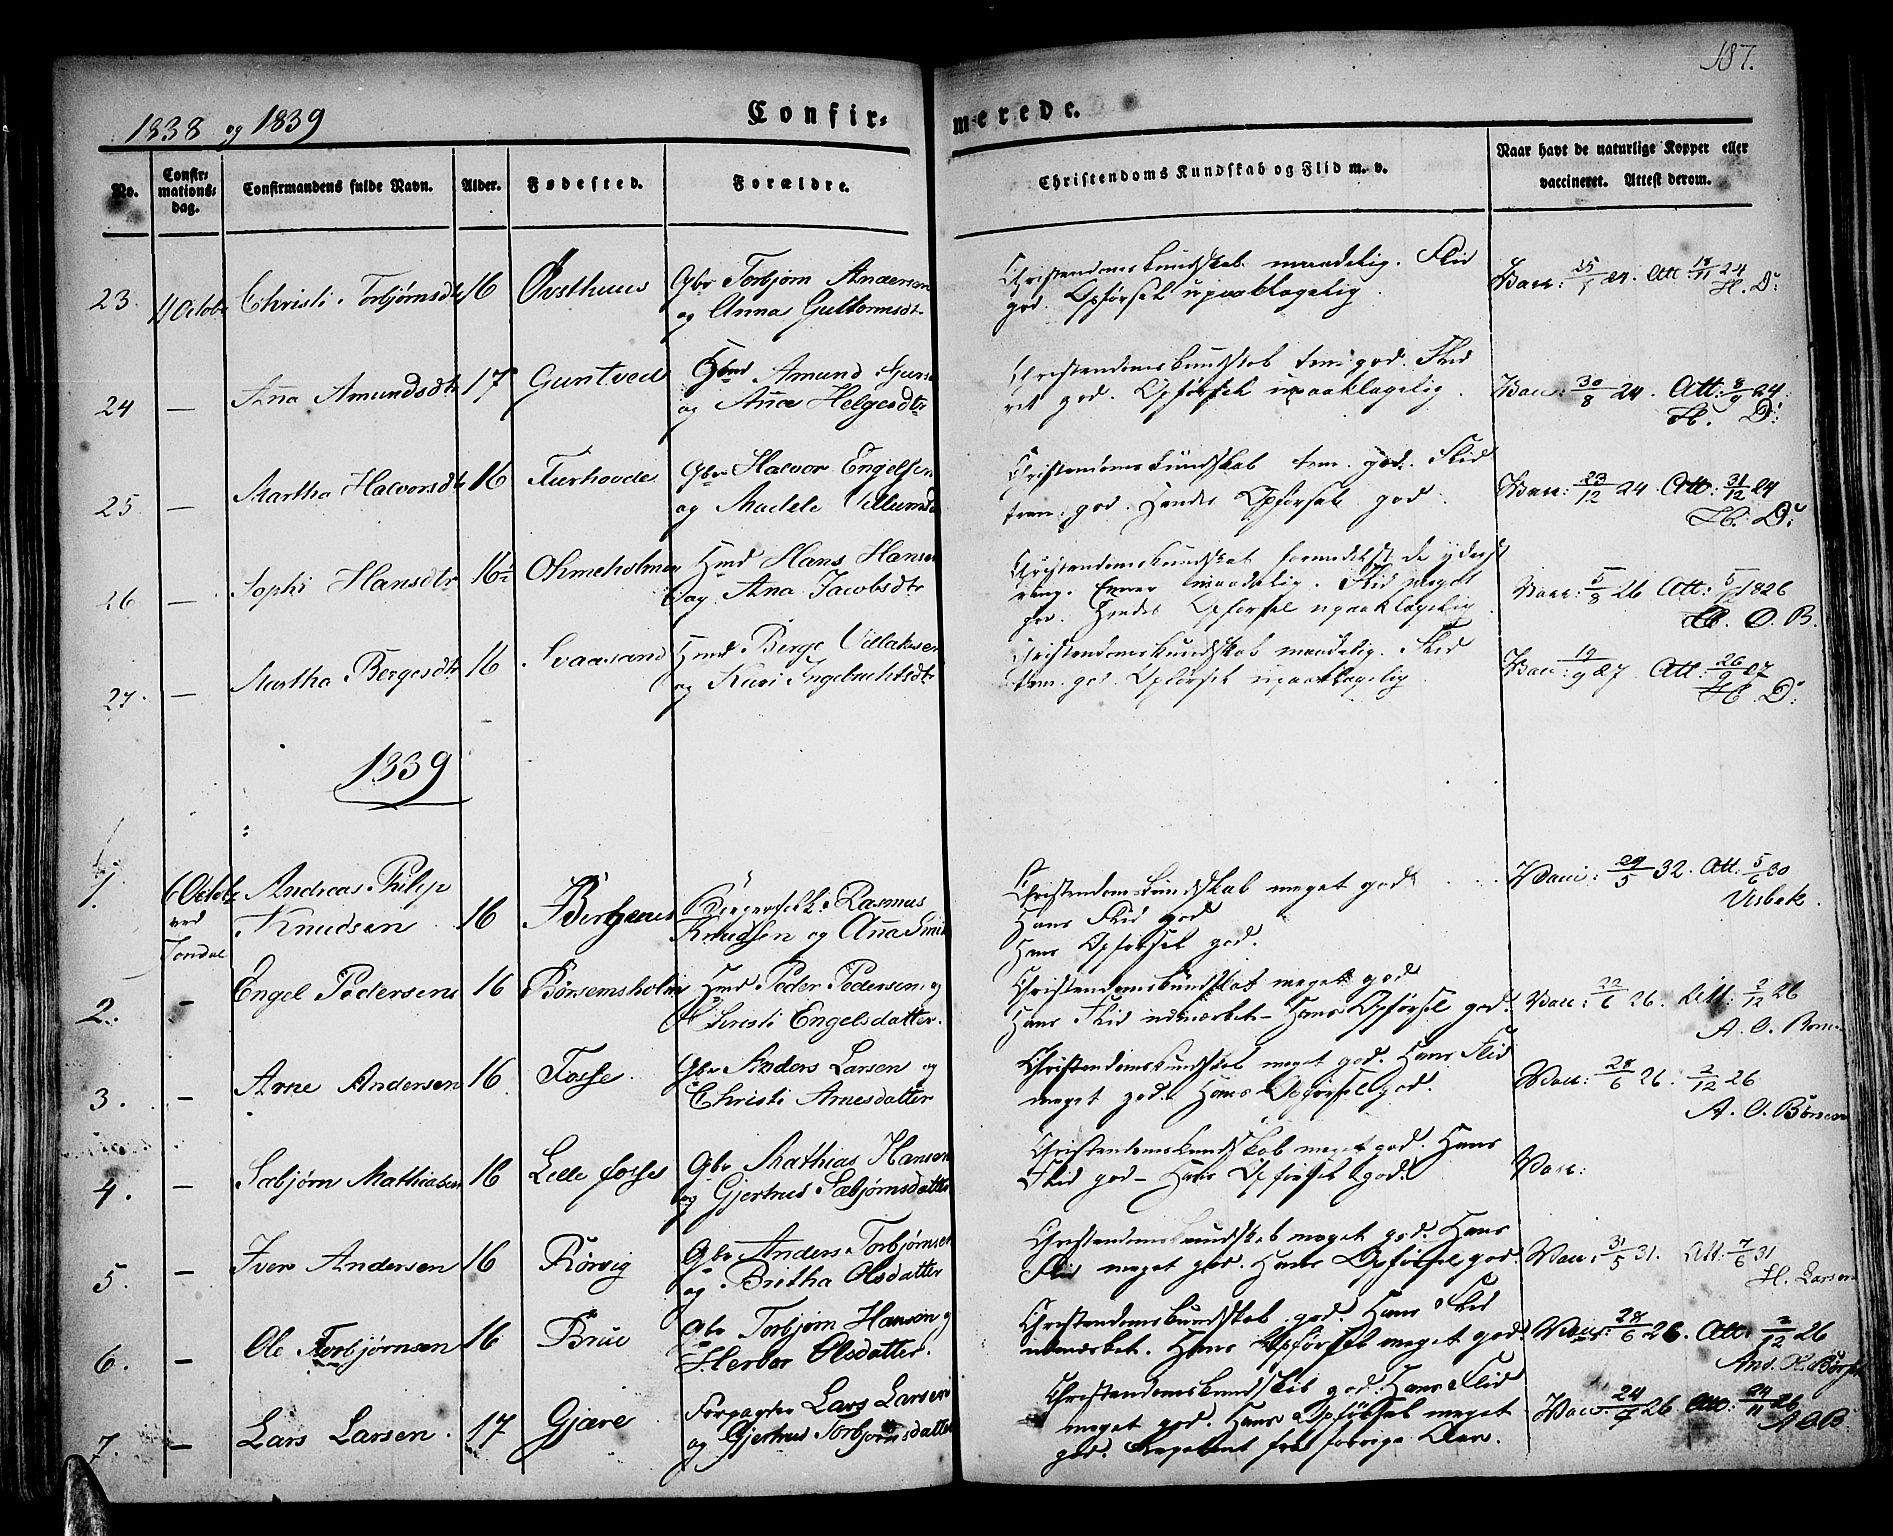 187.
1838 og 1839
Confir-
merede.
No.
Confir-
mations-
dag.
Confirmandens fulde Navn.
Alder.
Fødested.
Forældre.
Christendoms Kundskab og Flid m. v.
Naar havt de naturlige Kopper eller
vaccineret. Attest derom.
23. Christi Torbjørnsdtr 16 Gbr Torbjørn Andersen
og Anna Guttormsdtr
Christendomskundskab maadelig. Flid
god. Opførsel upaaklagelig.
H. D:
24 — Ana Amundsdtr 17 Guntved Amund
og Ana Helgesdtr
Christendomskundskab tem: god. Flid
ret god. Opførsel upaaklagelig.
Vacc: 30/8 24. Att: 8/9 24.
H. D:
25 — Martha Halvorsdtr 16 Gbr Halvor Engelsen
og
Christendomskundskab tem. god. Flid
tem. god. Hendes Opførsel god.
Vacc: 23/12 24 Att: 31/12 24
H. D:
26 — Sophi Hansdtr 16½ Hmd Hans Hansen
og Ana Jacobsdtr
Christendomskundskab formedelst de yderst
ringe Evner maadelig. Flid meget
god. Hendes Opførsel upaaklagelig
Vacc: 5/8 26 Att: 1826
O. B.
27. — Martha Bergesdtr 16 Svaasand Hmd Berge
og Kari Ingebrichtsdtr
Christendomskundskab maadelig. Flid
tem. god. Opførsel upaaklagelig.
Vacc: 19/9 27 Att: 26/9 27
H. D:
1839
1. 6 Octob Andreas Philip
ved Knudsen 16 Bergen Rasmus
Jondal Knudsen og Ana
Christendomskundskab meget god
Hans Flid god
Hans Opførsel god.
Vacci: 29/5 32. Att: 5/6 30
Visbek.
2. — Engel Pedersen 16 Børsemsholm Hmd Peder Pedersen og
Engelsdatter.
Christendomskundskab meget god
Hans Flid udmærket — Hans Opførsel god.
Vacc: 22/6 26. Att: 2/12 26
A. O.
3. — Arne Andersen 16 Fosse. Gbr Anders Larsen og
Christi Arnesdatter
Christendomskundskab meget god. Hans Flid
meget god. Hans Opførsel god.
Vacc: 28/6 26. 2/12 26
A. O.
4. — Sæbjørn Mathiasen 16 Lille fosse Gbr Mathias Hansen
og Gjertrud Sæbjørnsdatter
Christendomskundskab meget god. Hans
Flid god — Hans Opførsel god.
Vacc:
5. — Iver Andersen 16 Rørvig Gbr Anders Torbjørnsen
og Britha Olsdatter
Christendomskundskab meget god. Hans
Flid meget god. Hans Opførsel god.
Vacc: 31/5 31. Att: 7/6 31
H. Larsen
6. — Ole Torbjørnsen 16 Brue Gbr Torbjørn Hanson og
Herbor Olsdatter.
Christendomskundskab god. Hans Flid
udmærket. Hans Opførsel meget god.
Vacc: 28/6 26. Att: 2/12 26
7. — Lars Larsen. 17 Gjære Forpagter Lars Larsen
og Gjertrud Torbjørnsdatter
Christendomskundskab god. Hans Flid
meget god. Hans Opførsel meget
god. Repetent fra forrige Aar.
Vacc: 26 Att: 24/11 26
A O B